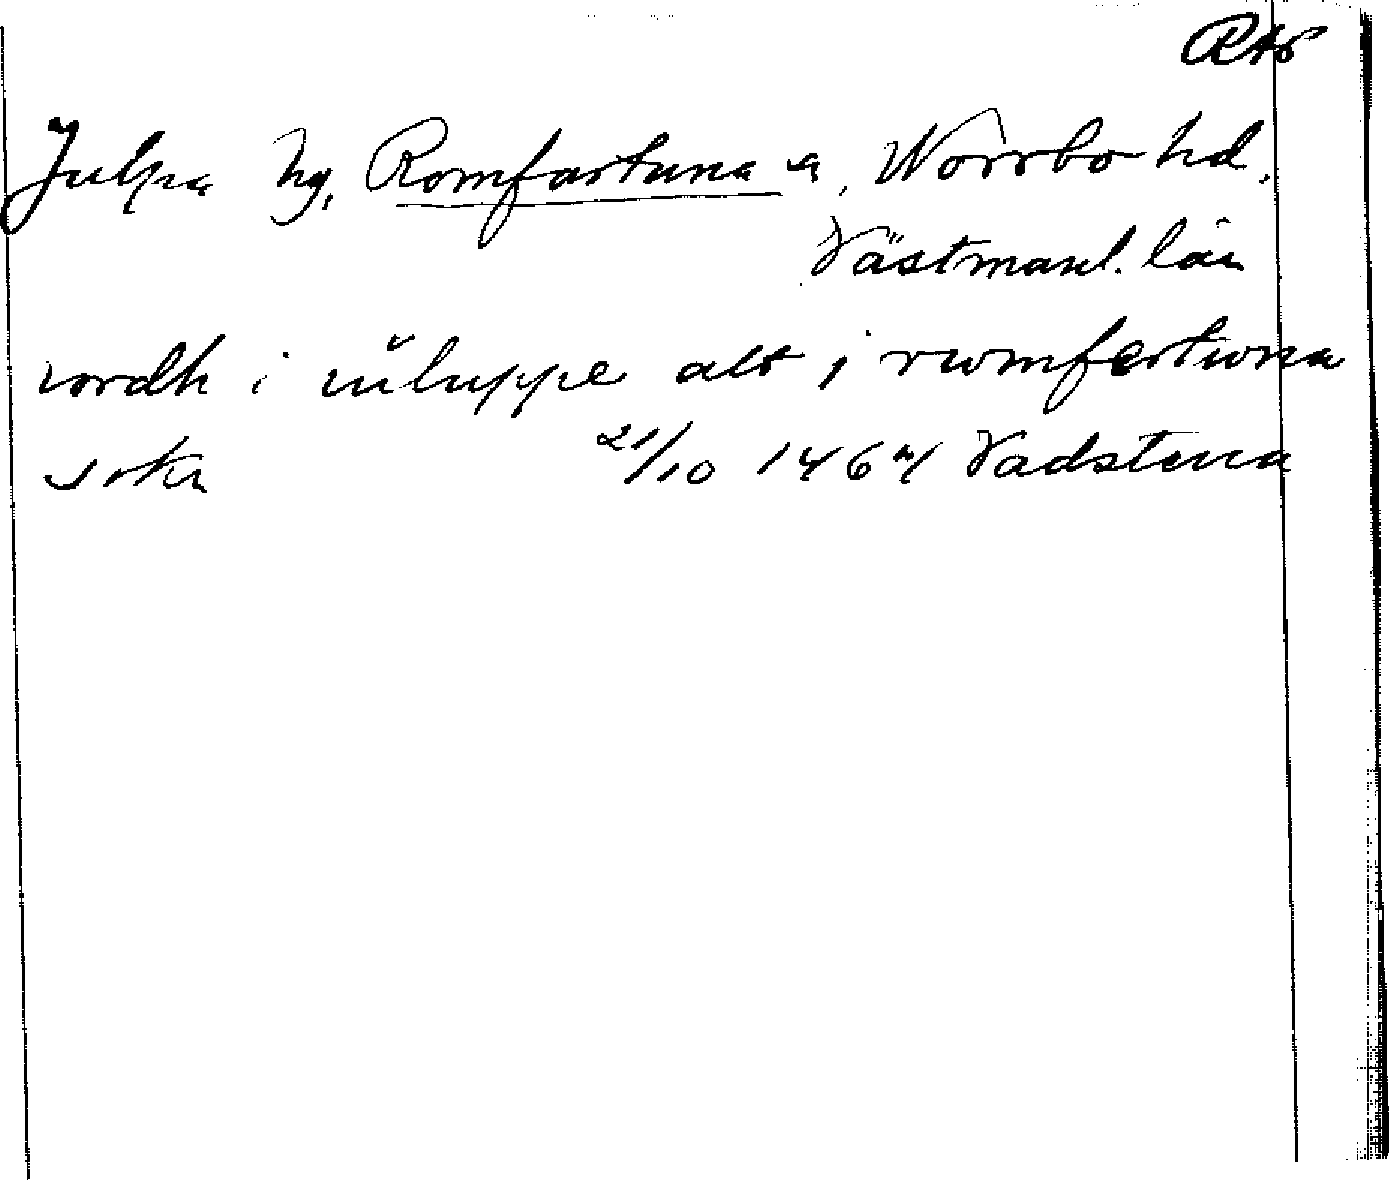 RAO
Julpa by, Romfartuna sn, Norrbo hd,
Västmanl. län
iordh i iuluppe alt j rwmfertwna
sokn 21/10 1464 Vadstena